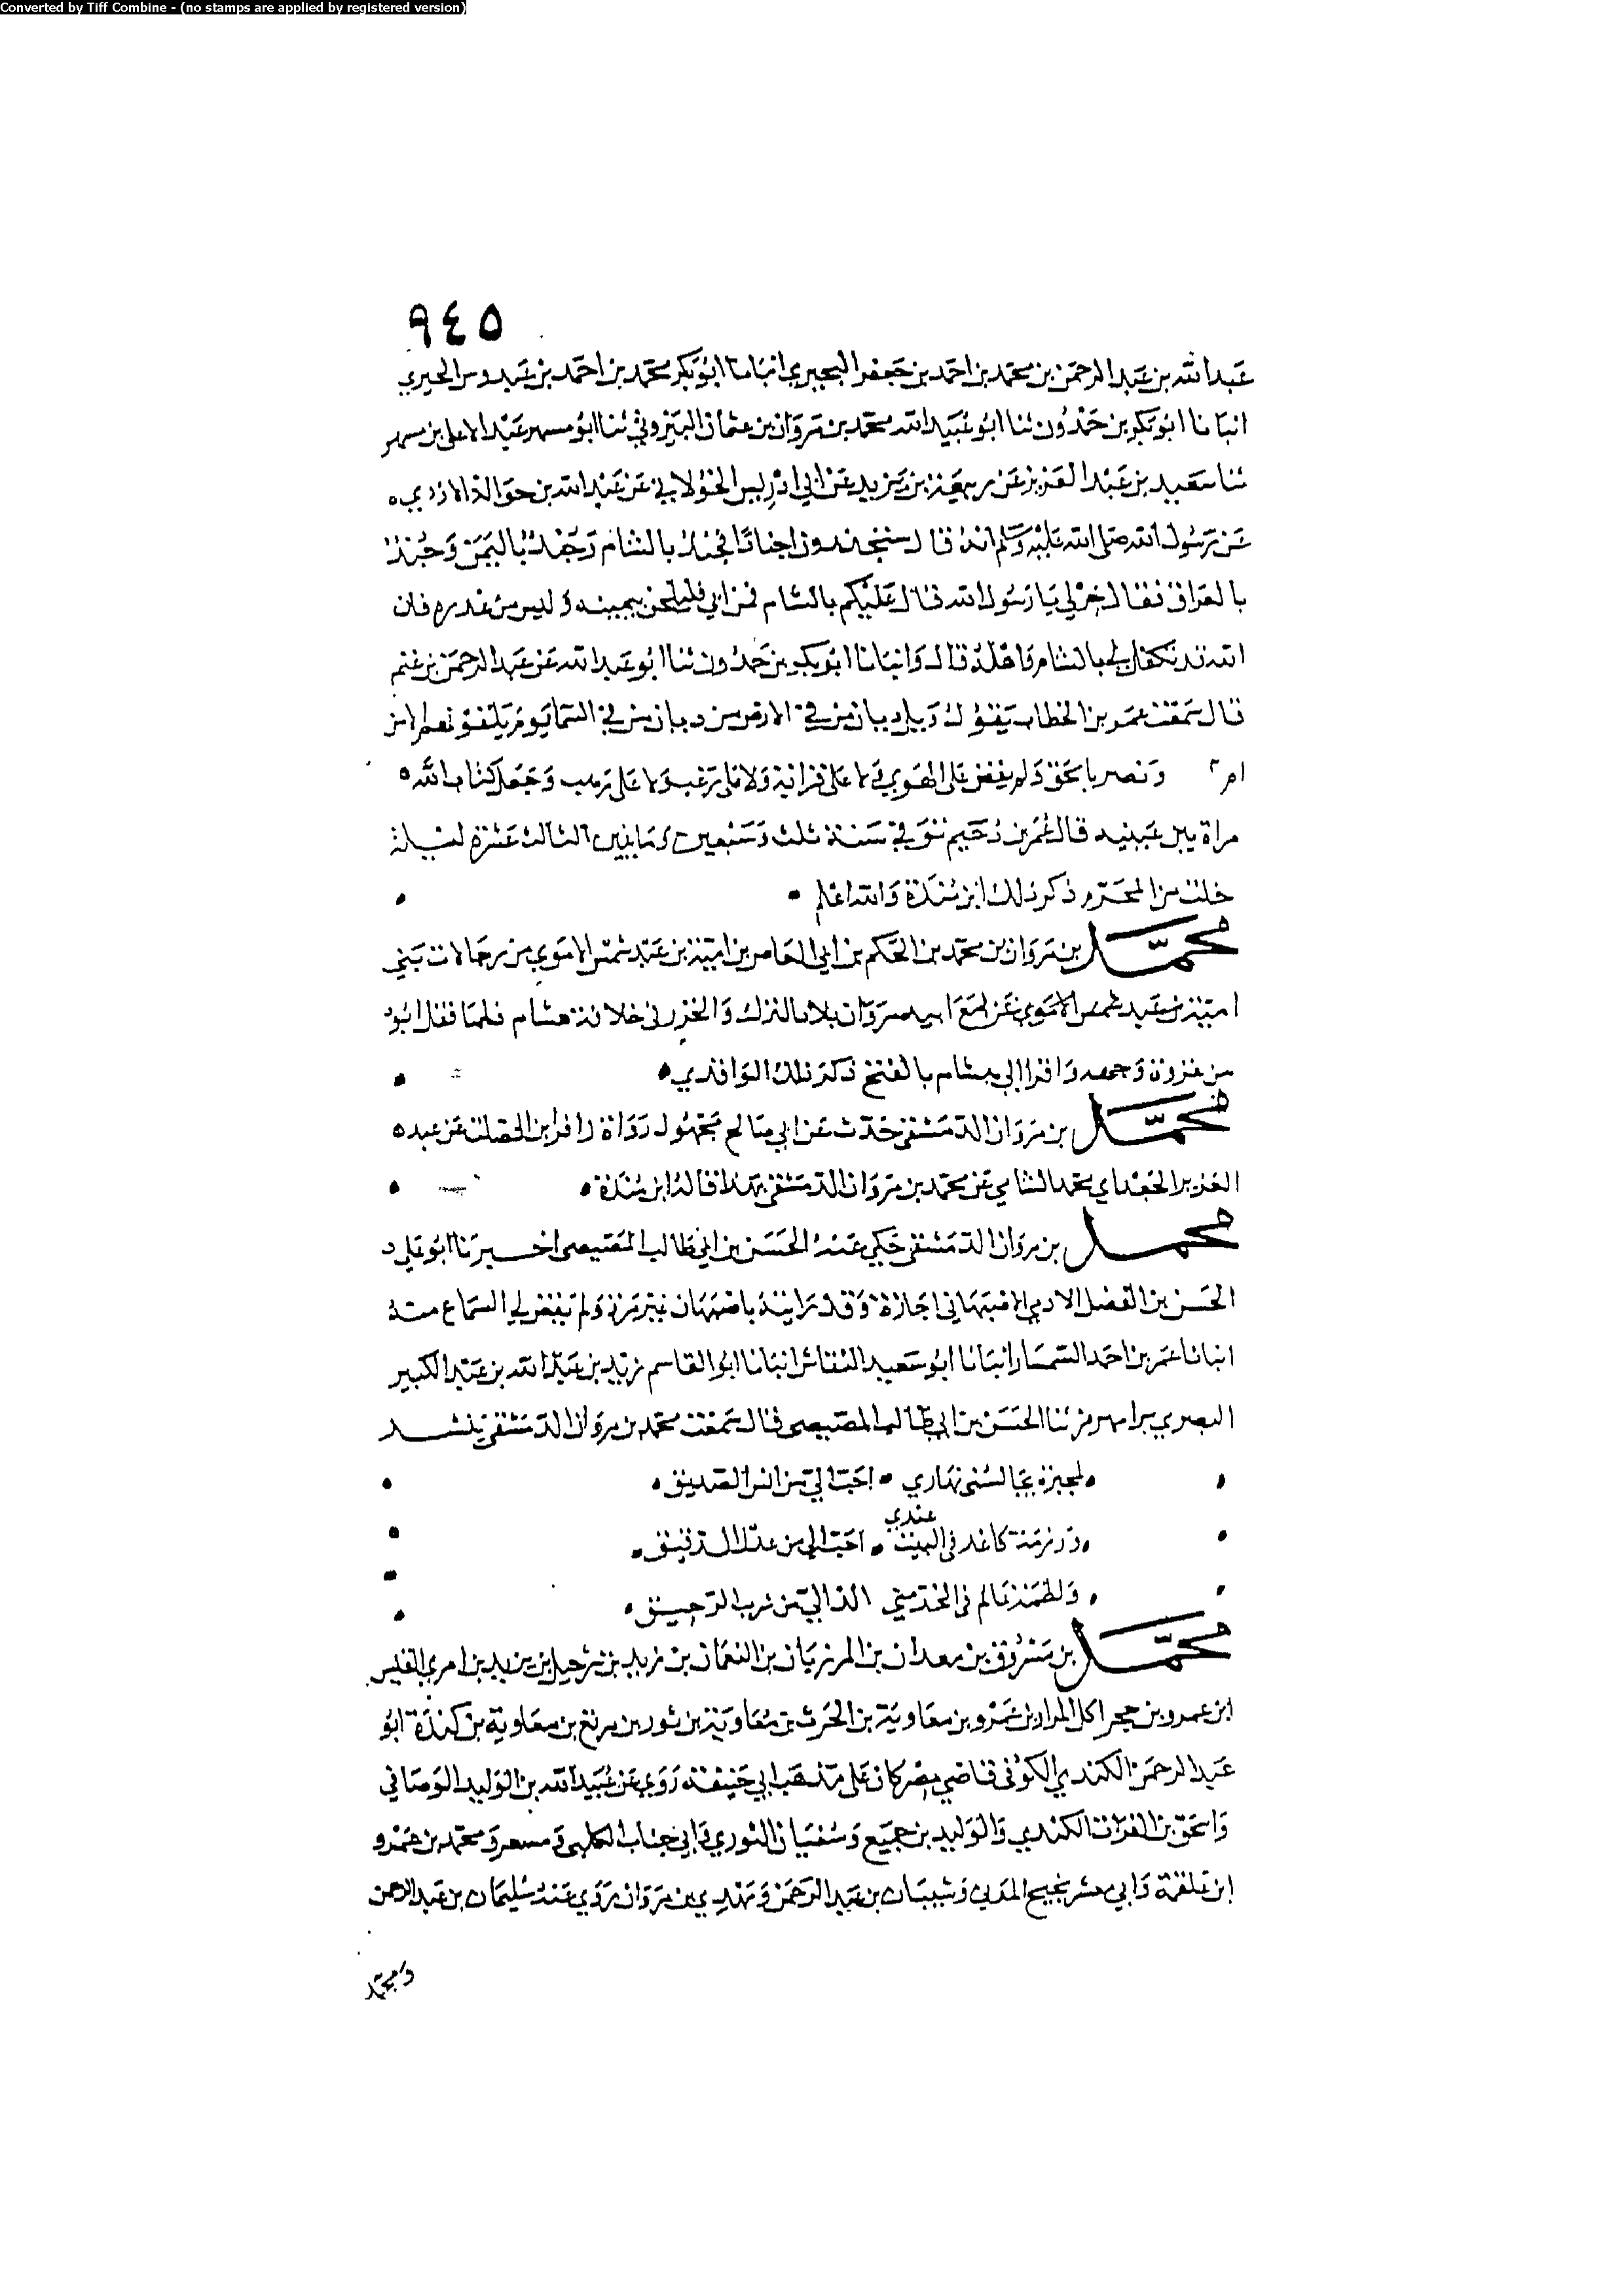 Converted by Tiff Combine - (no stamps are applied by registered version)
٩٤٥
عبد الله بن عبد الرحمن بن محمد بن احمد بن جعفر البحيري انبانا ابو بكر محمد بن احمد بن عبدوس الحيري
انبانا ابو بكر بن حمدون ثنا ابو عبيد الله محمد بن مروان بن عثمان البيروتي ثنا ابو مسهر عبد الاعلى بن مسهر
ثنا سعيد بن عبد العزيز عن ربيعة بن يزيد عن ابي ادريس الخولاني عن عبد الله بن حوالة الازدي ه
عن رسول الله صلى الله عليه وسلم انه قال ستجندون اجنادا جند بالشام وجند باليمن وجند
بالعراق فقال خر لي يا رسول الله قال عليكم بالشام فمن ابى فليلحق بيمينه وليس من غدره فان
الله قد تكفل لي بالشام واهله قال وانبانا ابو بكر بن حمدون ثنا ابو عبد الله عن عبد الرحمن بن غنم
قال سمعت عمر بن الخطاب يقول ويل ديان من في الارض من ديان من في السما يوم يلقونه الا من
امر ونصر باحق ولم يقض على الهوى ولا على قرابة ولا على رغب ولا على رهب وجعل كتاب الله ه
مراة بين عينيه قال عمر بن دحيم توفي في سنة ثلث وسبعين ومايتين الثالث عشرة ليلة
خلت من المحرم ذكر ذلك ابن مندة والله اعلم
محمد بن مروان بن محمد بن الحكم بن ابي العاص بن امية بن عبد شمس الاموي من رجالات بني
امية بن عبد شمس الاموي غزا مع ابيه مروان بلاد الترك والخزر في خلافة هشام فلما قفل ابوه
من غزوة وجهه وافدا الى هشام بالفتح ذكر ذلك الواقدي
محمد بن مروان الدمشقي حدث عن ابي صالح مجهول رواة زافر بن الصلت عن عبد ه
العزيز الحمد الشامي عن محمد بن مروان الدمشقي بهذا قاله ابن مندة
محمد بن مروان الدمشقي حكى عنه الحسن بن ابي طالب المصيصي اخبرنا ابو علي
الحسن بن الفضل الادمي الاصبهاني اجازة وقد رايته باصبهان غير مرة ولم يقض لي السماع منه
انبانا عمر بن احمد السمسار انبانا ابو سعيد النقاش انبانا ابو القاسم زيد بن عبد الله بن عبد الكبير
البصري برامهرمز ثنا الحسن بن ابي طالب المصيصي قال سمعت محمد بن مروان الدمشقي ينشد
لمحبرة تجالسني نهاري احب الي من انس الصديق
ورزمة كاغد في البيت عندي احب الي من عدل الدقيق
ولطمة عالم في الخد مني الذ الي من شرب الرحيق
محمد بن مسروق بن معدان بن المرزبان بن النعمان بن زيد بن شرحبيل بن يزيد بن امرئ القيس
ابن عمرو بن حجر اكل المرار بن عمرو بن معاوية بن الحرث بن معاوية بن ثور بن مرتع بن معاوية بن كندة ابو
عبد الرحمن الكندي الكوفي قاضي مصر كان على مذهب ابي حنيفة روى عن عبيد الله بن الوليد الوصافي
واسحق بن الفرات الكندي والوليد بن جميع وسفيان الثوري وابي جناب الكلبي ومسعر ومحمد بن عمرو
ابن علقمة وابي معشر نجيح المدني وشيبان بن عبد الرحمن ومهدي بن مروان روى عنه سليمان بن عبد الرحمن
ومحمد